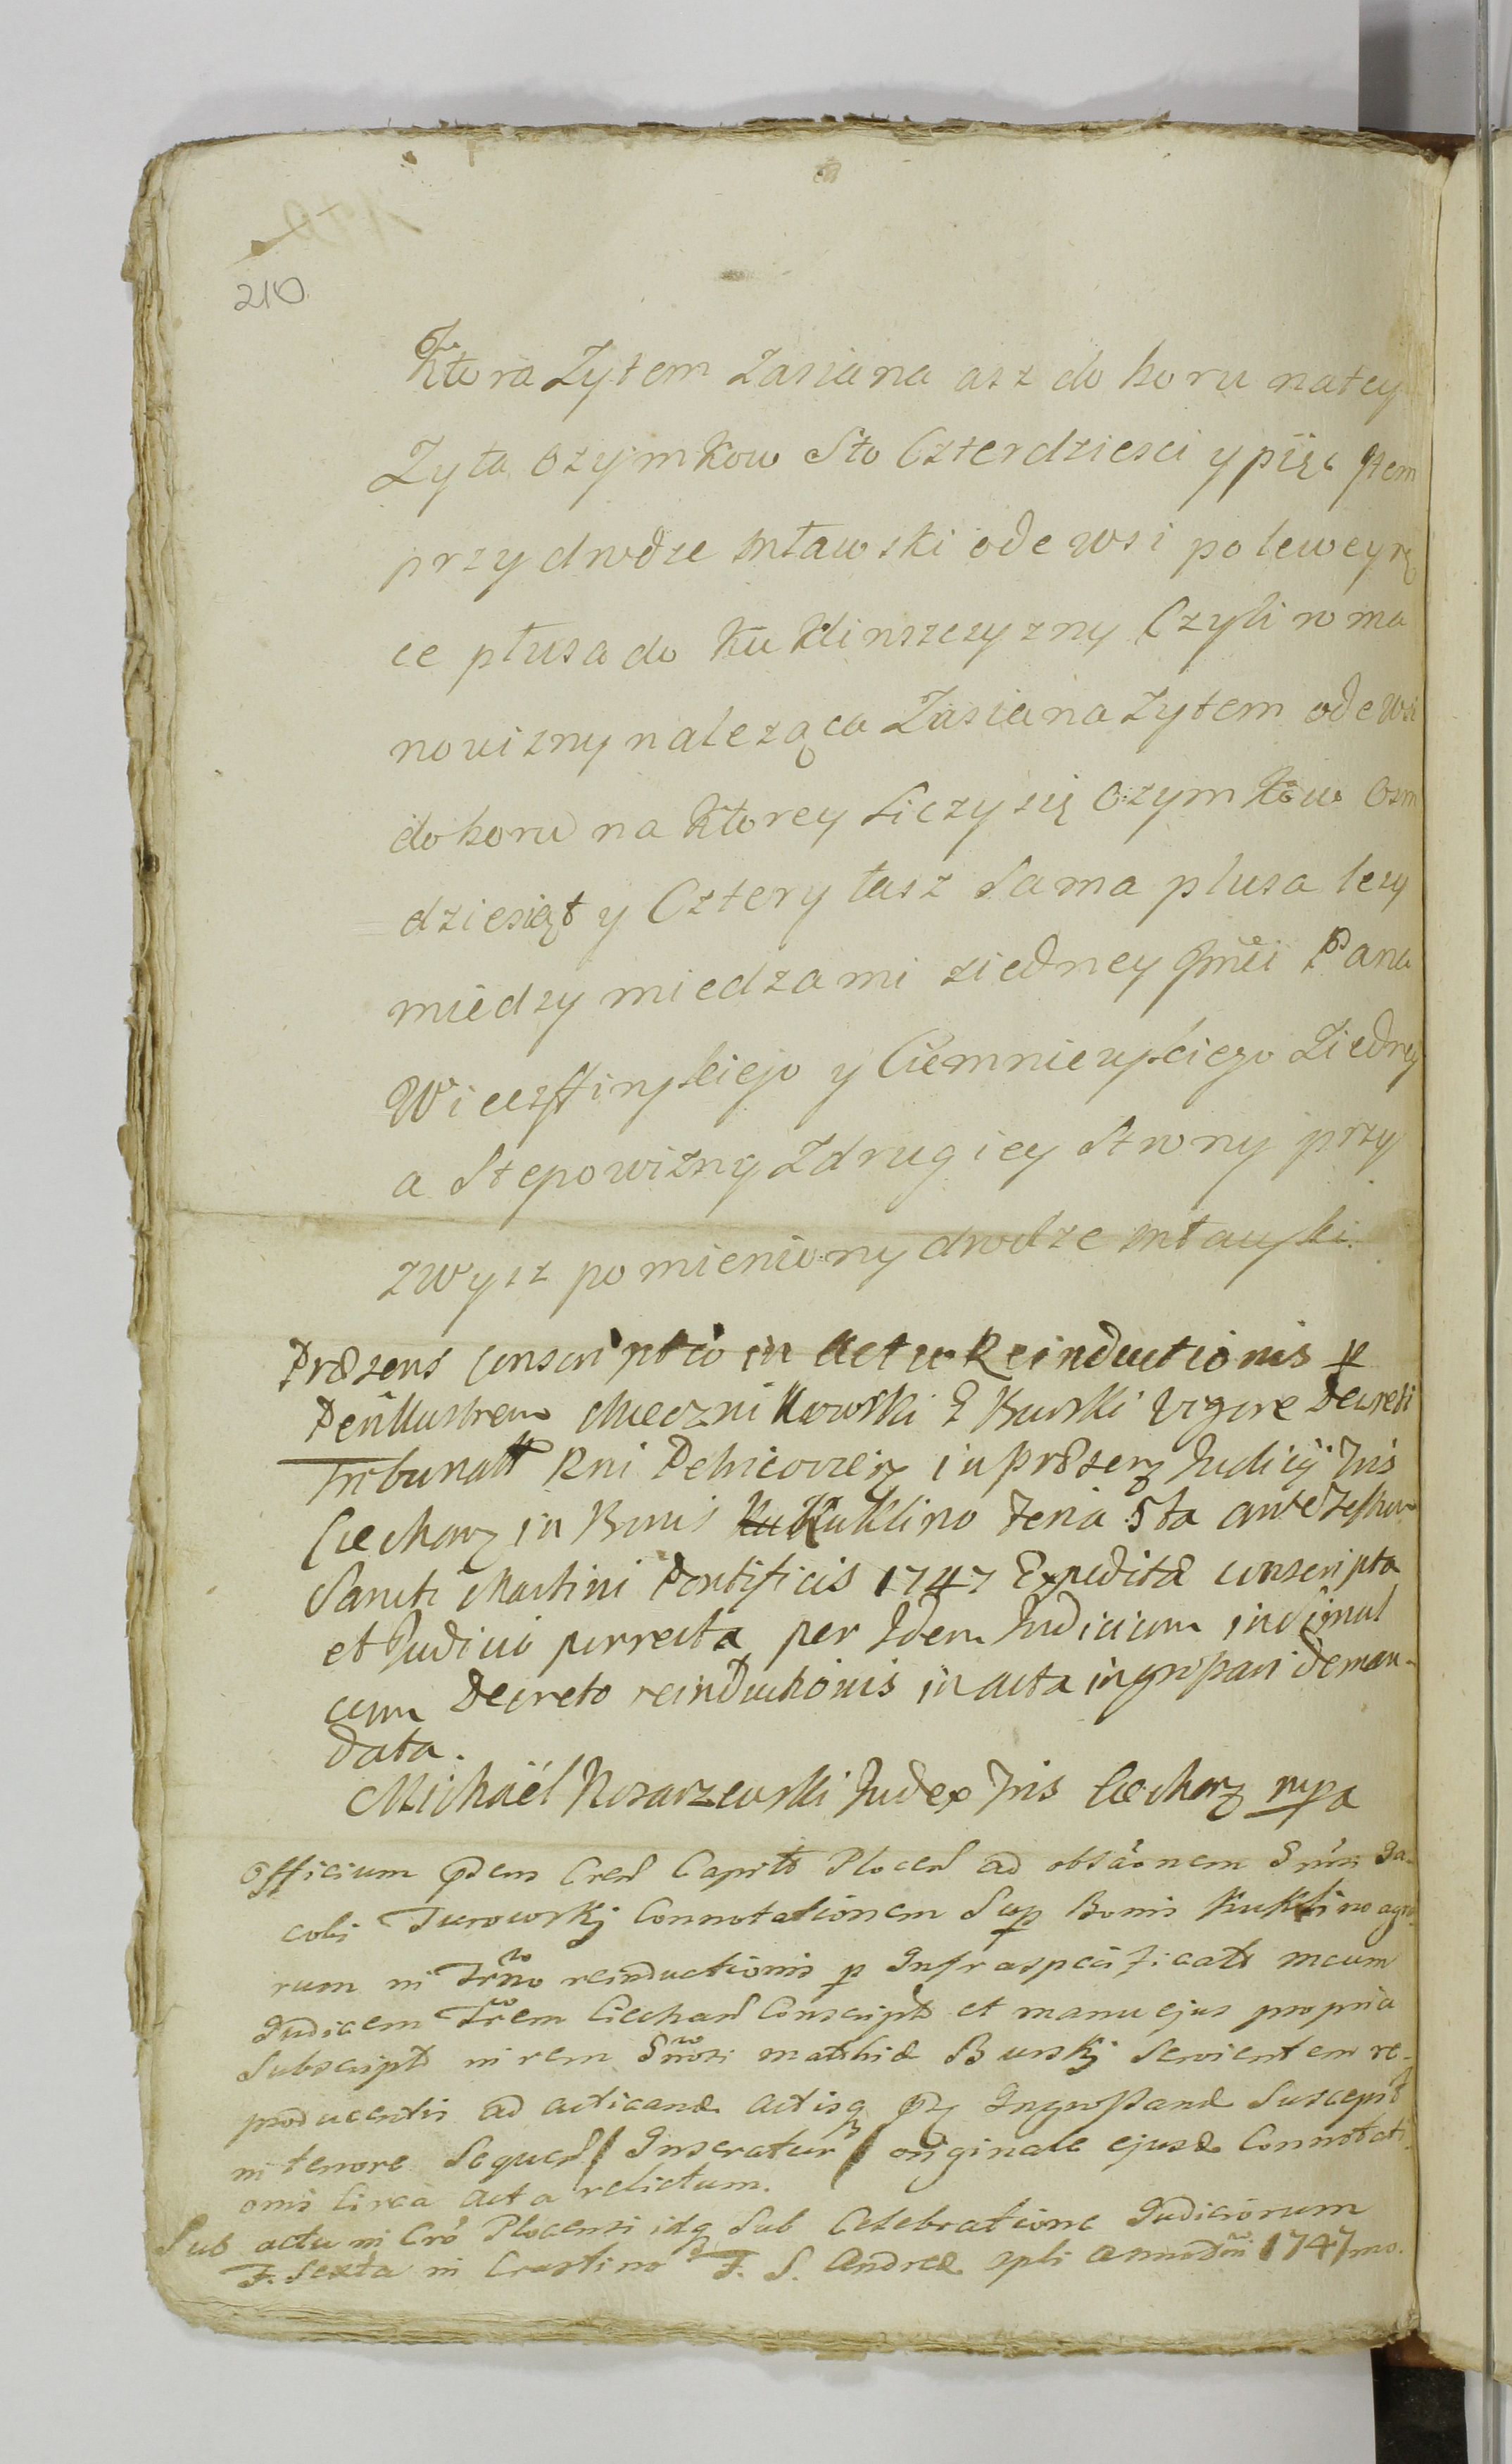 210
Ktora Zytem Zasiana asz do boru natey
Zyta Ozymkow Sto Czterdziesci y pięc Item
przy drodze Mławski ode wsi po lewey rę
ce płusa do Kuklinszczyzny Czyli roma
nowizny naleząca Zasiana Zytem ode wsi
do boru na Ktorey Liczy się Ozymkow Osm
dziesiąt y Cztery tasz Sama plusa lezy
miedzy miedzami ziedney Pana
Wieczffinskiego y Ciemniewskiego Ziedney
a Stepowizny Zdrugiey Strony przy
zwysz pomieniony drodze Mławski.
Præsens conscriptio in Actu Reinductionis p
Perillustrem Miecznikowski & Burski Vigore Decreti
Tribunalis Rni in præsen Judicij Tris
Ciechan in Bonis Kuklino Feria 5ta ante Festum
Sancti Martini Pontificis 1747 Expeditæ conscripta
et Judicio porrecta per Idem Judicium insimul
cum Decreto reinductionis in acta ingrossari deman-
data.
Michaël Nosarzewski Judex Tris Ciechan mpa
Officium Capit Plocen ad obla̅onem Ja-
cobi Turowskj Connotationem Sup Bonis Kuklino agro-
rum in reinductionis p Infraspecificat
Judicem Trem Ciechan Conscript et manu ejus propria
Subscript in rem Mathiæ Burskj Servientem re-
producentis ad acticand actisq Ingrossand Suscepit
in tenore Sequen / Inseratur / originale ejusd Connotati-
onis circa acta relictum.
Sub actu in Cro Plocensi idq Sub Celebratione Judiciorum
F. Sexta in Crastino F. S. Andreæ apli anno Dni 1747mo.